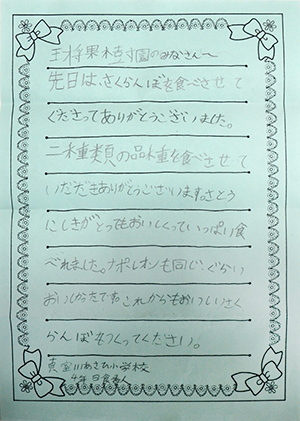 王将果樹園のみなさんへ
先日は、さくらんぼを食べさせて
くださってありがとうございました。
二種類の品種を食べさせて
いただきありがとうございます。さとう
にしきがとってもおいしくっていっぱい食
べれました。ナポレオンも同じぐらい
おいしかったです。これからもおいしいさく
らんぼをつくってください。
真室川あさひ小学校
4年